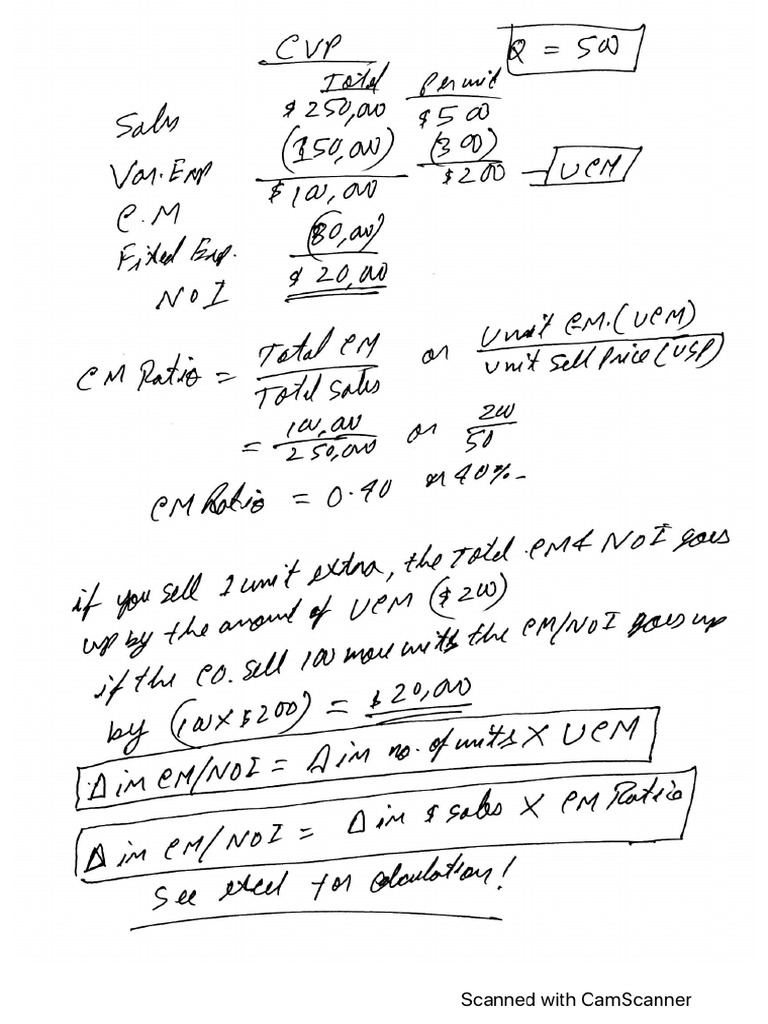 CVP
Q = 500
Total Per unit
Sales $250,000 $500
Var. Exp (150,000) (300)
C.M $100,000 $200 – UCM
Fixed Exp. (80,000)
NOI $20,000
CM Ratio = Total CM / Total Sales or Unit CM. (UCM) / Unit Sell Price (USP)
= 100,000 / 250,000 or 200 / 50
CM Ratio = 0.40 or 40%
if you sell 1 unit extra, the Total CM & NOI goes
up by the amount of UCM ($200)
if the CO. sell 100 more units the CM/NOI goes up
by (100 X $200) = $20,000
Δ in CM/NOI = Δ in no. of units X UCM
Δ in CM/NOI = Δ in $ sales X CM Ratio
See excel for calculation!
Scanned with CamScanner